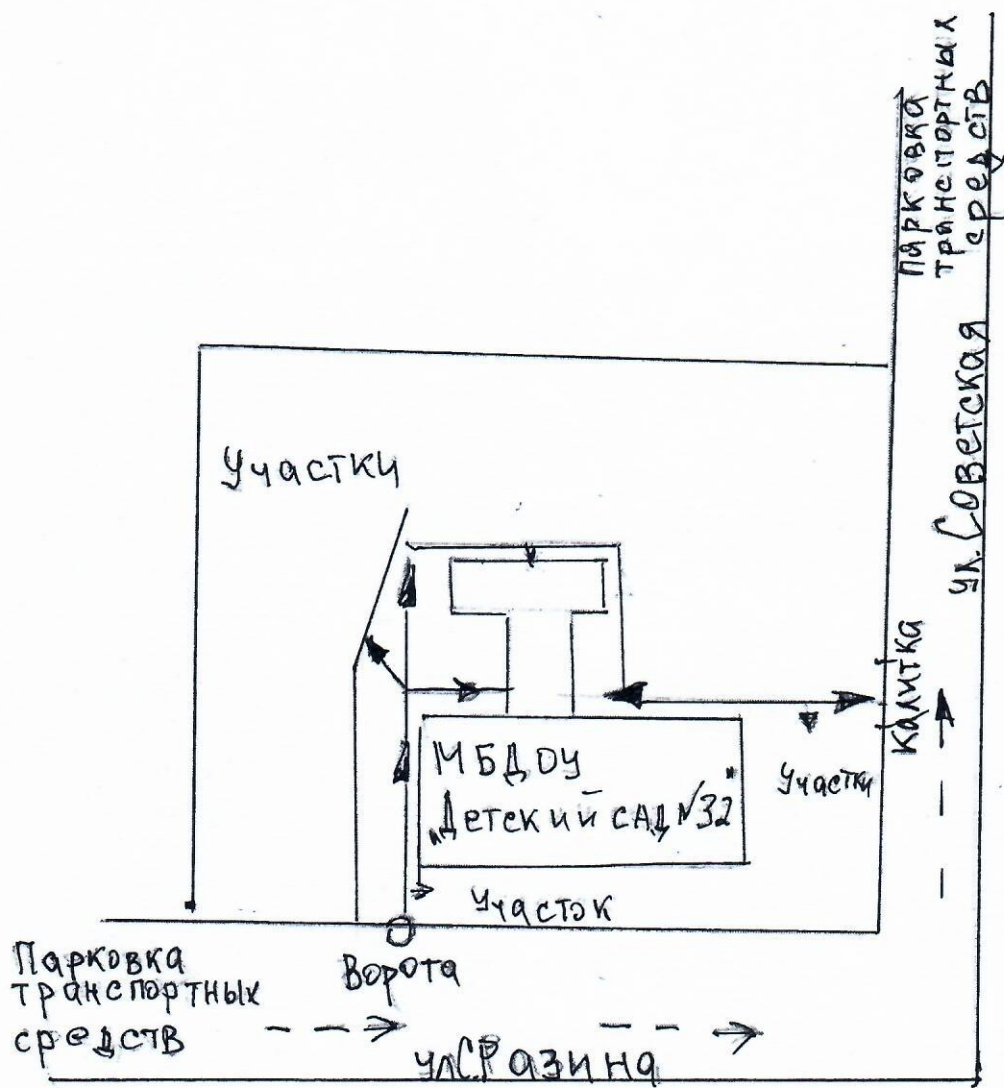 Парковка
транспортных
средств
ул. Советская
Участки
Калитка
МБДОУ
„Детский сад №32"
Участки
Участок
Ворота
Парковка
транспортных
средств
ул С.Разина